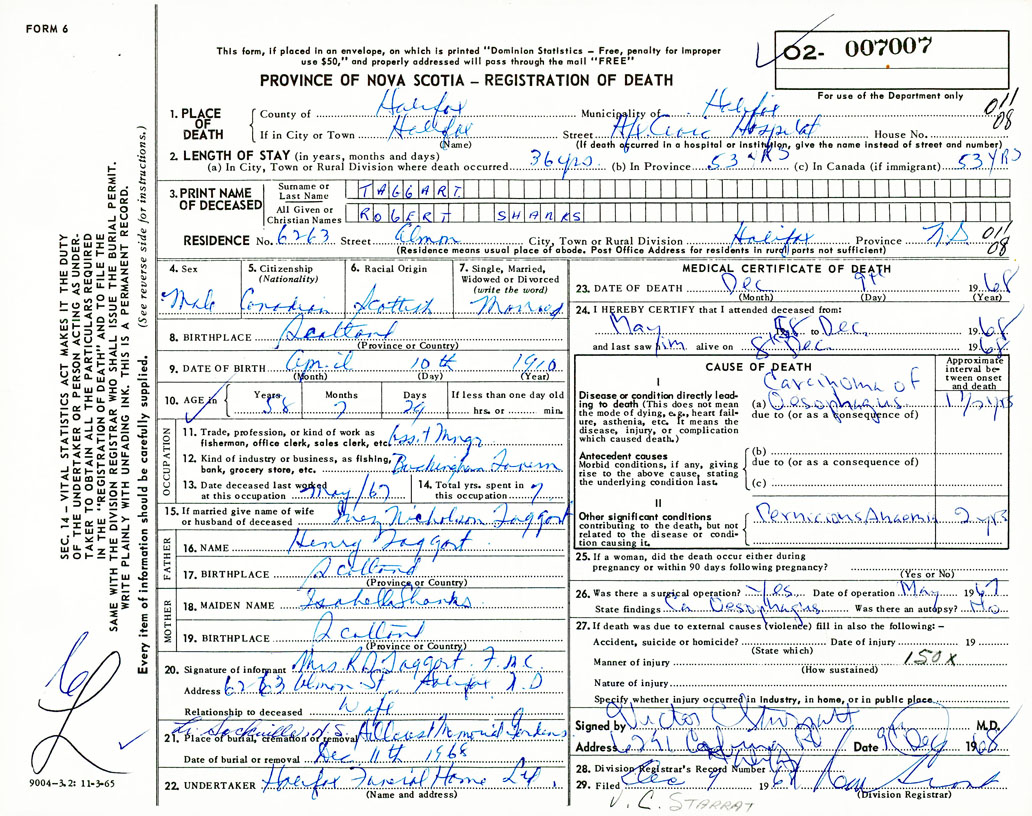 FORM 6
This form, if placed in an envelope, on which is printed "Dominion Statistics – Free, penalty for improper
use $50," and properly addressed will pass through the mail "FREE"
PROVINCE OF NOVA SCOTIA – REGISTRATION OF DEATH
02- 007007
For use of the Department only
011
08
1. PLACE OF DEATH
County of Halifax Municipality of Halifax
If in City or Town Halifax Street Hfx Civic Hospital House No.
(Name) (If death occurred in a hospital or institution, give the name instead of street and number)
2. LENGTH OF STAY (in years, months and days)
(a) In City, Town or Rural Division where death occurred 36 yrs. (b) In Province 53 YRS (c) In Canada (if immigrant) 53 YRS
3. PRINT NAME OF DECEASED
Surname or Last Name TAGGART
All Given or Christian Names ROBERT SHANKS
RESIDENCE No. 6263 Street Almon City, Town or Rural Division Halifax Province N.S
011
08
(Residence means usual place of abode. Post Office Address for residents in rural parts not sufficient)
4. Sex
Male
5. Citizenship (Nationality)
Canadian
6. Racial Origin
Scottish
7. Single, Married, Widowed or Divorced (write the word)
Married
8. BIRTHPLACE Scotland
(Province or Country)
9. DATE OF BIRTH April 10th 1910
(Month) (Day) (Year)
10. AGE in Years 58 Months 7 Days 29 If less than one day old
hrs. or min.
OCCUPATION
11. Trade, profession, or kind of work as
fisherman, office clerk, sales clerk, etc. Asst Mngr
12. Kind of industry or business, as fishing,
bank, grocery store, etc. Buckingham Tavern
13. Date deceased last worked
at this occupation May/67
14. Total yrs. spent in
this occupation 7
15. If married give name of wife
or husband of deceased Inez Nicholson Taggart
FATHER
16. NAME Henry Taggart
17. BIRTHPLACE Scotland
(Province or Country)
MOTHER
18. MAIDEN NAME Isabella Shanks
19. BIRTHPLACE Scotland
(Province or Country)
20. Signature of informant Mrs. R Taggart
Address 6263 Almon St. Halifax N.S
Relationship to deceased Wife
Sackville N.S.
21. Place of burial, cremation or removal Memorial Gardens
Date of burial or removal Dec 11th 1968
22. UNDERTAKER Halifax Funeral Home Ltd.
(Name and address)
MEDICAL CERTIFICATE OF DEATH
23. DATE OF DEATH Dec 9th 1968
(Month) (Day) (Year)
24. I HEREBY CERTIFY that I attended deceased from:
May 68 to Dec. 1968
and last saw him alive on 8th Dec. 1968
CAUSE OF DEATH
Approximate interval between onset and death
I
Disease or condition directly leading to death (This does not mean
the mode of dying, e.g., heart failure, asthenia, etc. It means the
disease, injury, or complication
which caused death.)
Carcinoma of
(a) Oesophagus
due to (or as a consequence of)
Antecedent causes
Morbid conditions, if any, giving
rise to the above cause, stating
the underlying condition last.
(b)
due to (or as a consequence of)
(c)
II
Other significant conditions
contributing to the death, but not
related to the disease or condition causing it.
Pernicious Anaemia 2 yrs
25. If a woman, did the death occur either during
pregnancy or within 90 days following pregnancy?
(Yes or No)
26. Was there a surgical operation? Yes. Date of operation May 1967
State findings Ca Oesophagus Was there an autopsy? No
27. If death was due to external causes (violence) fill in also the following: –
Accident, suicide or homicide? Date of injury 19
(State which)
Manner of injury 150X
(How sustained)
Nature of injury
Specify whether injury occurred in Industry, in home, or in public place
Signed by Victor M.D.
Address 6291 Date 9th Dec 1968
28. Division Registrar's Record Number
29. Filed Dec 9 1968
(Division Registrar)
V. C. STARRAT
SEC. 14 – VITAL STATISTICS ACT MAKES IT THE DUTY
OF THE UNDERTAKER OR PERSON ACTING AS UNDERTAKER TO OBTAIN ALL THE PARTICULARS REQUIRED
IN THE "REGISTRATION OF DEATH" AND TO FILE THE
SAME WITH THE DIVISION REGISTRAR WHO SHALL ISSUE THE BURIAL PERMIT.
WRITE PLAINLY WITH UNFADING INK. THIS IS A PERMANENT RECORD.
Every item of information should be carefully supplied. (See reverse side for instructions.)
9004–3.2: 11-3-65